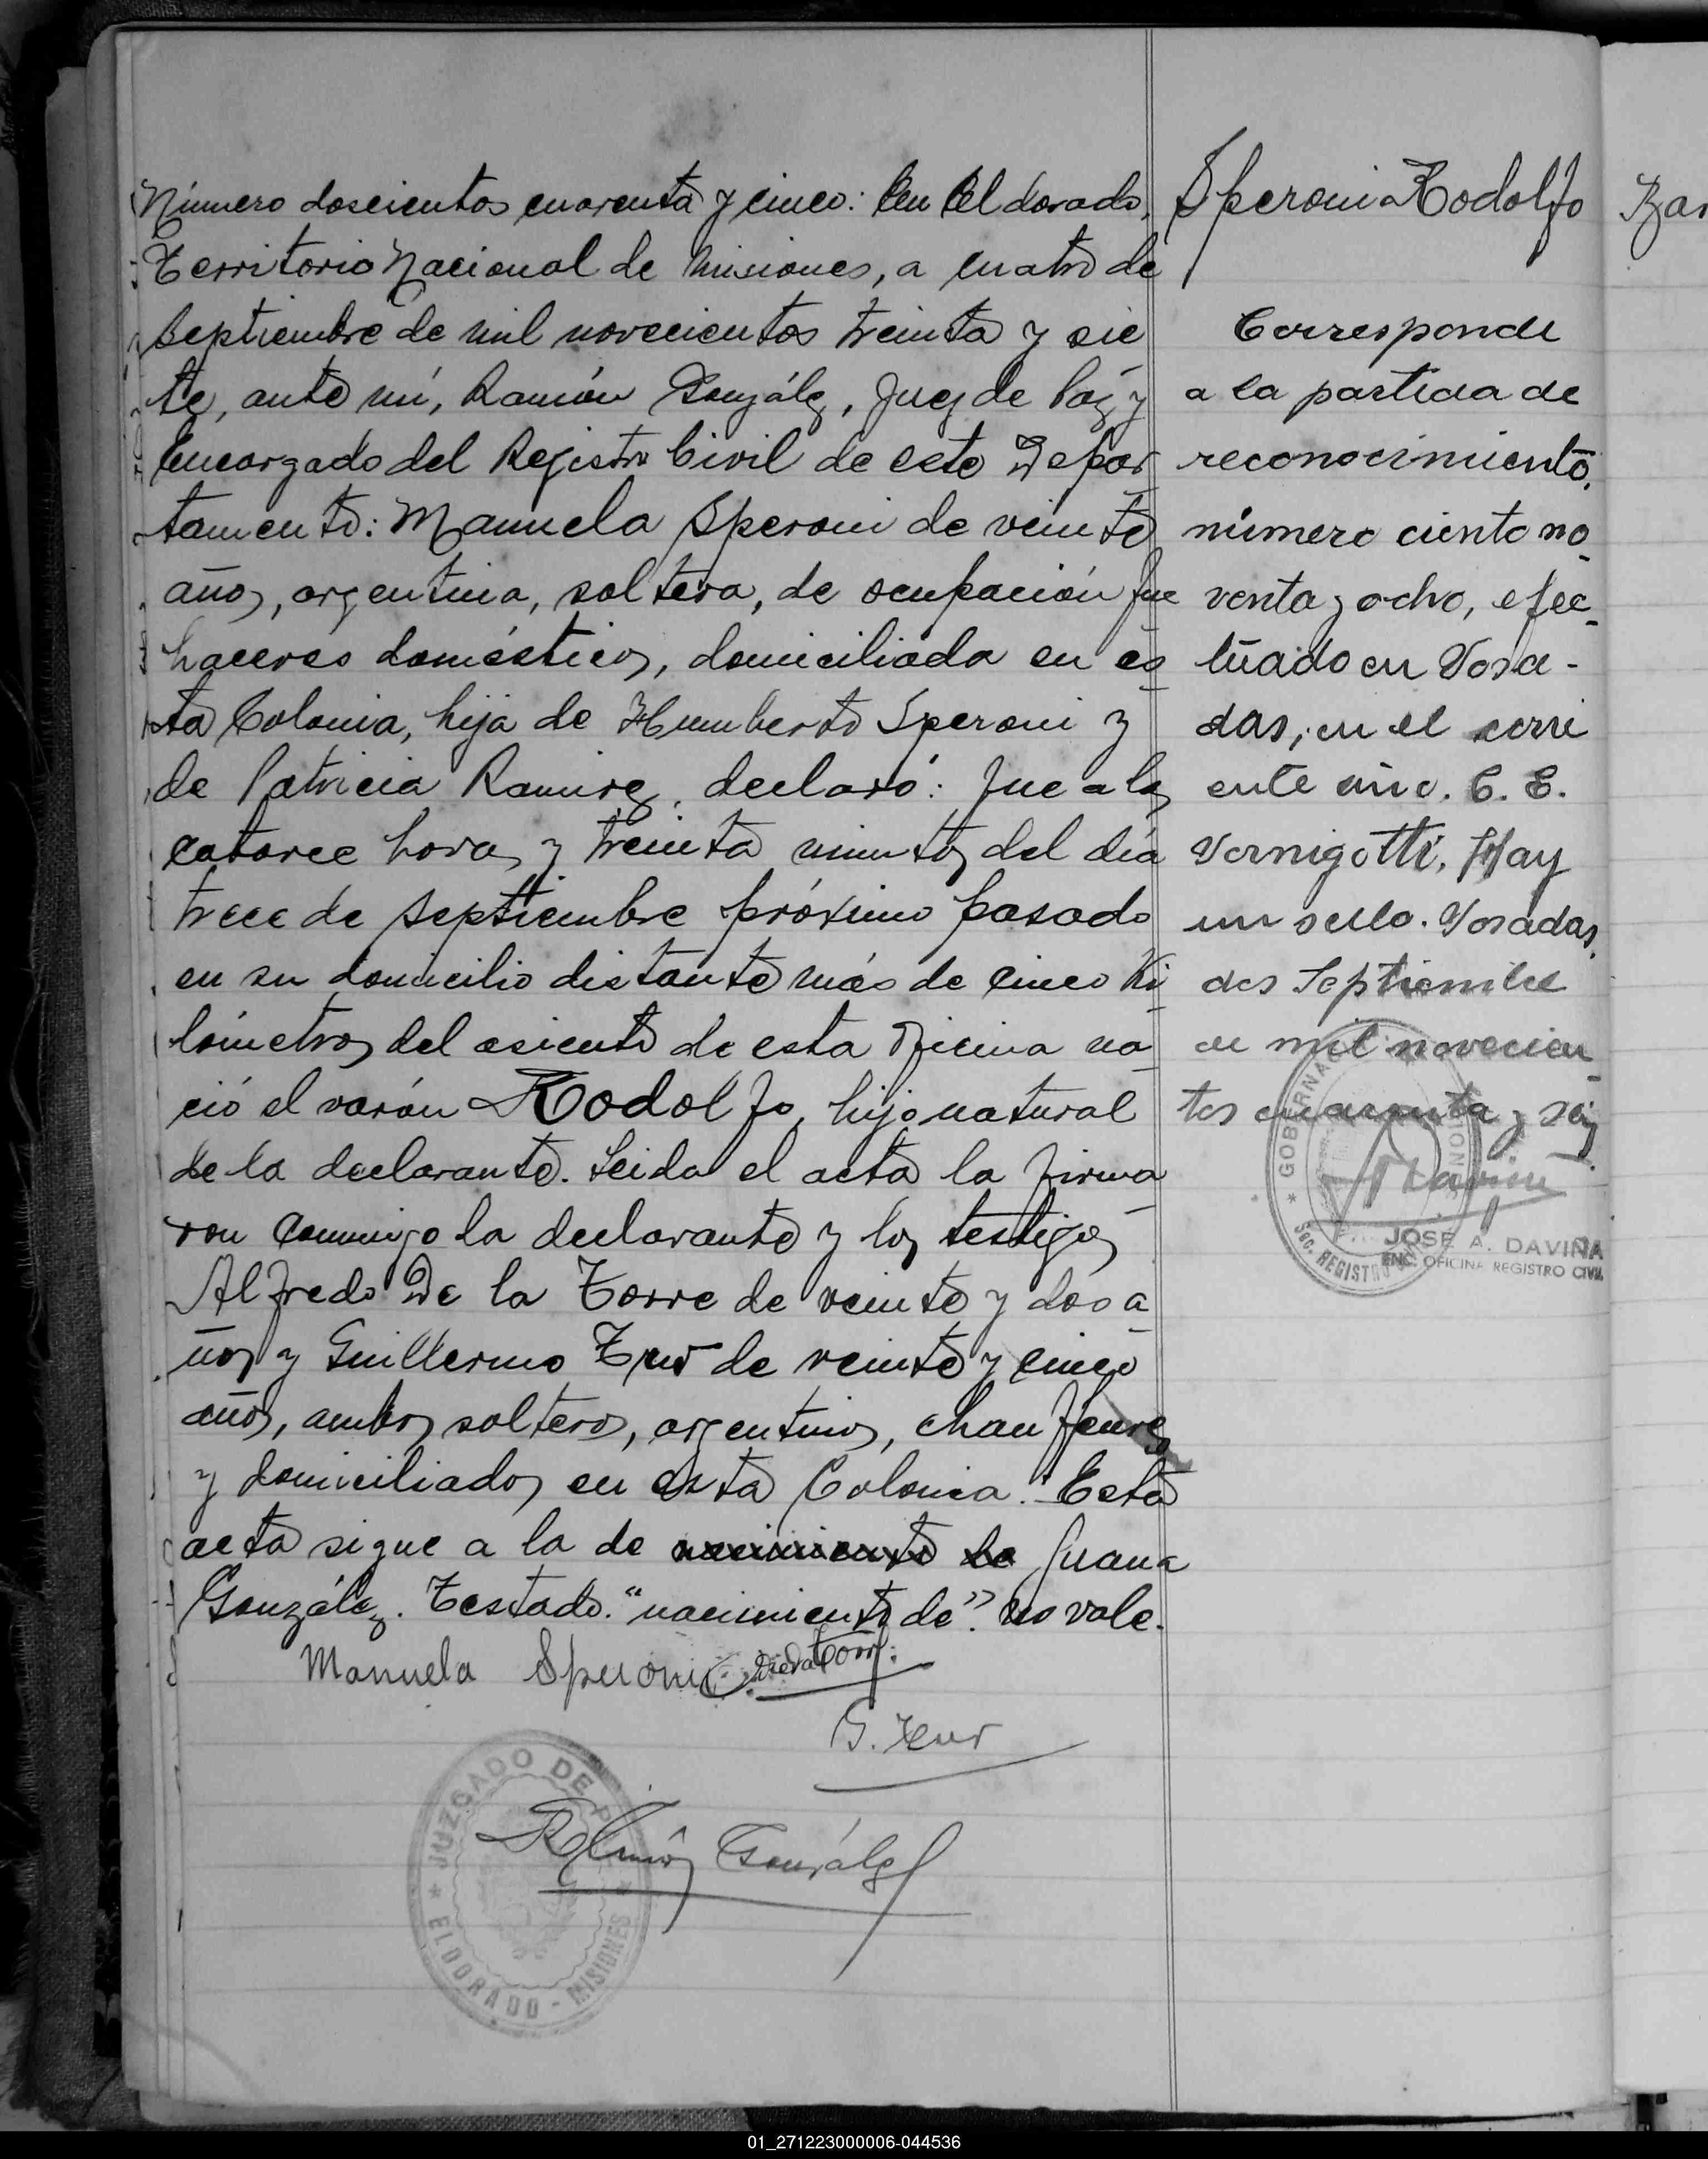 Número doscientos cuarenta y cinco: En Eldorado,
Territorio Nacional de Misiones, a cuatro de
septiembre de mil novecientos treinta y sie
te, ante mí, Ramón González, Juez de Paz y
Encargado del Registro Civil de este Depar
tamento: Manuela Speroni de veinte
años, argentina, soltera, de ocupación que
haceres domésticos, domiciliada en es
ta Colonia, hija de Humberto Speroni y
de Patricia Ramirez, declaró: Que a las
catorce horas y treinta minutos del día
trece de septiembre próximo pasado
en su domicilio distante más de cinco ki
lómetros del asiento de esta Oficina na
ció el varón Rodolfo, hijo natural
de la declarante. Leida el acta la firma
ron conmigo la declarante y los testigos
Alfredo De la Torre de veinte y dos a
ños y Guillermo de veinte y cinco
años, ambos solteros, argentinos, chauffeures
y domiciliados en esta Colonia. Esta
acta sigue a la de nacimiento de Juana
González. Testado. "nacimiento de". no vale.
Manuela Speroni
G.
Ramón González
JUZGADO DE P
ELDORADO - MISIONES
Speroni Rodolfo
Corresponde
a la partida de
reconocimiento,
número ciento no
venta y ocho, efec
tuado en Posa-
das, en el corri
ente año. C. E.
Vernigotti. Hay
un sello. Posadas,
dos Septiembre
de mil novecien
tos cuarenta y seis
Davina
GOBERNA
SEC. REGISTRO
JOSE A. DAVIÑA
ENC. OFICINA REGISTRO CIVIL
01_271223000006-044536